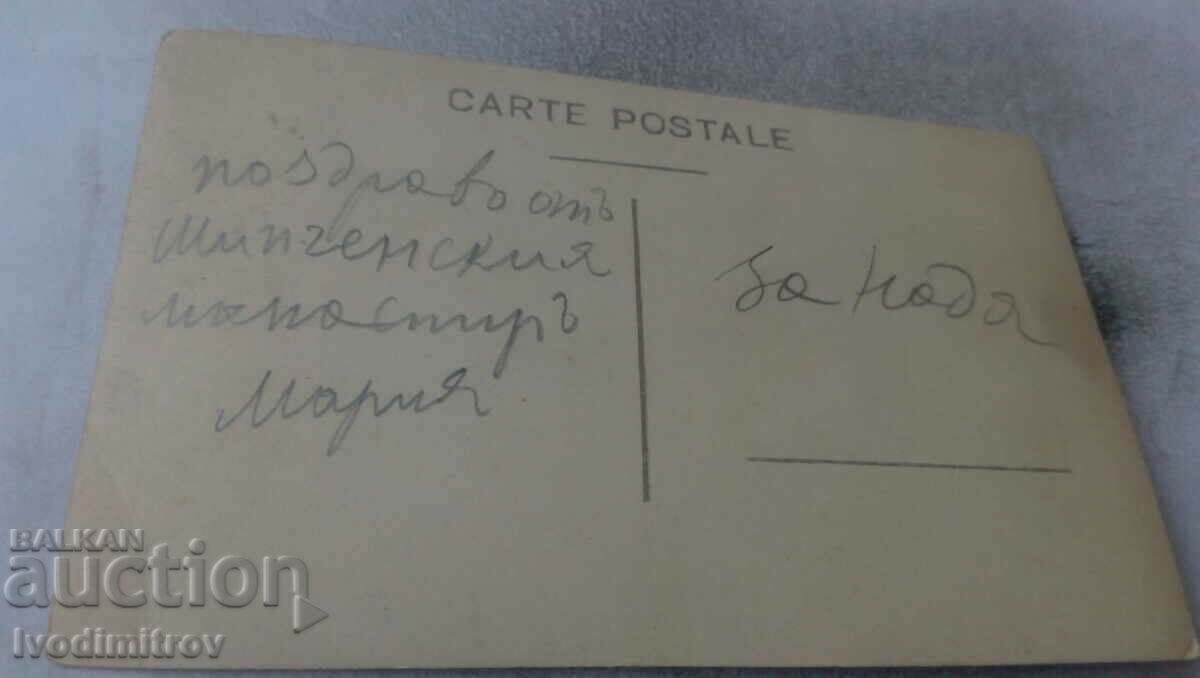 CARTE POSTALE
поздравъ отъ
Шипченския
манастиръ
Мария
За Надя
BALKAN
auction
Ivodimitrov